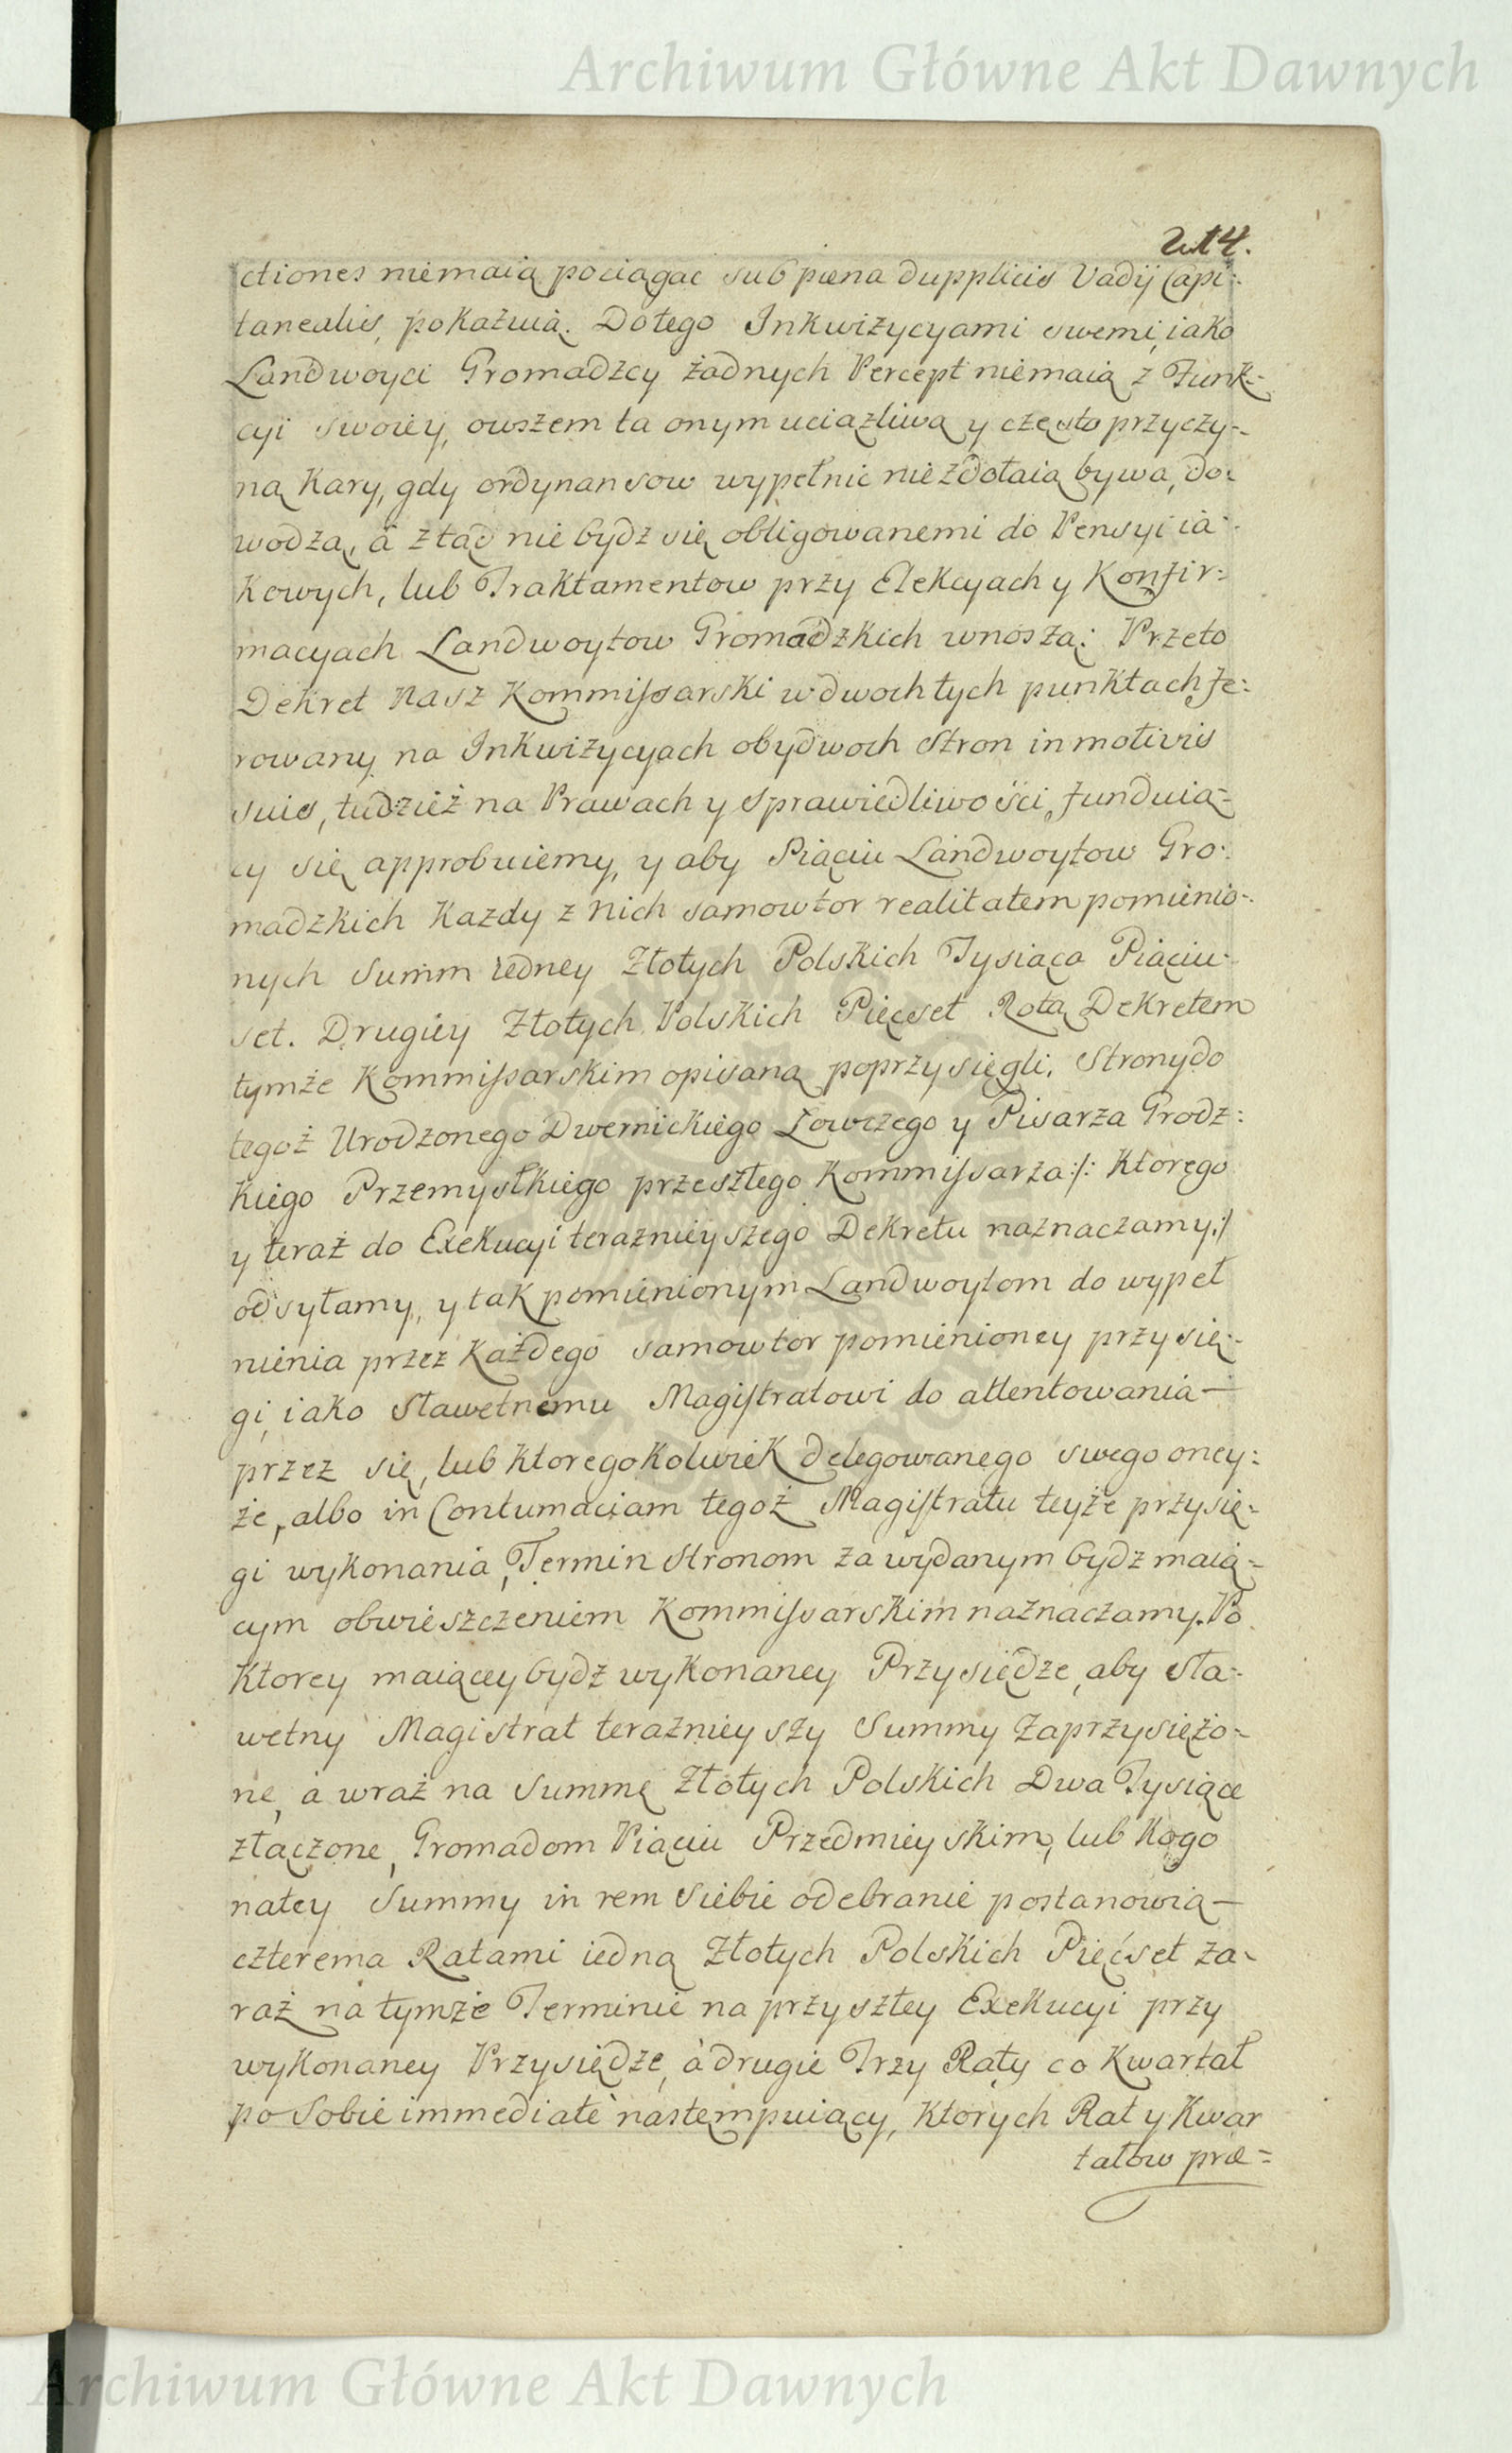 Archiwum Główne Akt Dawnych
214.
ctiones niemaią pociągać sub pæna dupplicis Vadij Capi:
tanealis, pokazuią. Do tego Inkwizycyami swemi, iako
Landwoyci Gromadzcy żadnych Percept niemaią z Funk:
cyi swoiey, owszem ta onym uciążliwą y często przyczy:
ną Kary, gdy ordynansow wypełnić nie zdołaią bywa, do:
wodzą, á ztąd nie bydź się obligowanemi do Pensyi ia:
Kowych, lub Traktamentow przy Elekcyach y Konfir:
macyach Landwoytow Gromadzkich wnoszą: Przeto
Dekret Nasz Kommissarski w dwoch tych punktach fe:
rowany na Inkwizycyach obydwoch Stron in motivis
suis, tudzież na Prawach y Sprawiedliwości funduią:
cy się approbuiemy, y aby Piąciu Landwoytow Gro:
madzkich Kazdy z Nich samowtor realitatem pomienio:
nych Summ iedney Złotych Polskich Tysiąca Piąciu:
set. Drugiey Złotych Polskich Pięćset Rotą Dekretem
tymże Kommissarskim opisaną poprzysięgli, Strony do
tegoż Urodzonego Dwernickiego Łowczego y Pisarza Grodz:
Kiego Przemyslkiego przeszłego Kommissarza :/: Ktorego
y teraż do Exekucyi teraznieyszego Dekretu naznaczamy :/
odsyłamy, y tak pomienionym Landwoytom do wypeł
nienia przez Każdego samowtor pomienioney przysię:
gi, iako Sławetnemu Magistratowi do attentowania —
przez się, lub Ktoregokolwiek delegowanego swego oney:
że, albo in Contumaciam tegoż Magistratu teyże przysię:
gi wykonania, Termin Stronom za wydanym bydź maią:
cym obwieszczeniem Kommissarskim naznaczamy. Po
Ktorey maiącey bydź wykonaney Przysiędze, aby Sła:
wetny Magistrat teraznieyszy Summy Zaprzysiężo:
ne, a wraz na Summę Złotych Polskich Dwa Tysiące
złączone, Gromadom Piąciu Przedmieyskim, lub Kogo
na tey Summy in rem Siebie odebranie postanowią —
czterema Ratami iedną Złotych Polskich Pięćset za:
raż na tymże Terminie na przyszłey Exekucyi przy
wykonaney Przysiędze, á drugie Trzy Raty co Kwartał
po Sobie immediatè nastempuiący, Ktorych Rat y Kwar
tałow præ:
Archiwum Główne Akt Dawnych